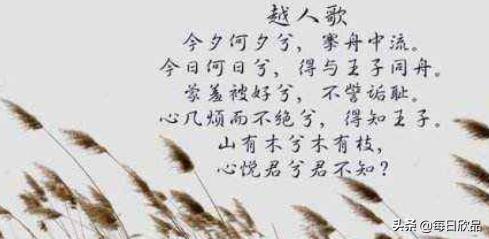 越人歌
今夕何夕兮，搴舟中流。
今日何日兮，得与王子同舟。
蒙羞被好兮，不訾诟耻。
心几烦而不绝兮，得知王子。
山有木兮木有枝，
心悦君兮君不知？
头条 @每日欣品